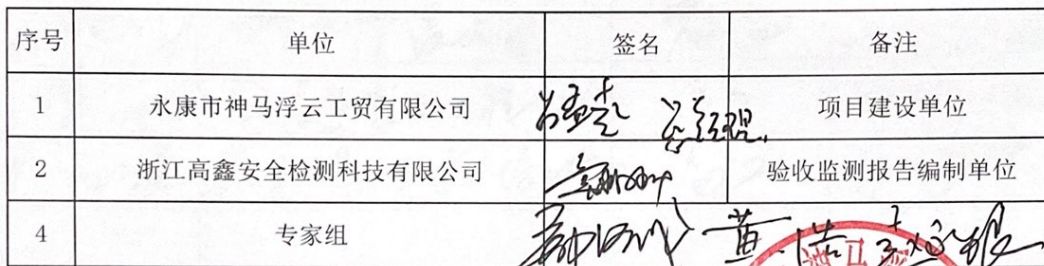 序号 单位 签名 备注
1 永康市神马浮云工贸有限公司 项目建设单位
2 浙江高鑫安全检测科技有限公司 验收监测报告编制单位
4 专家组 黄